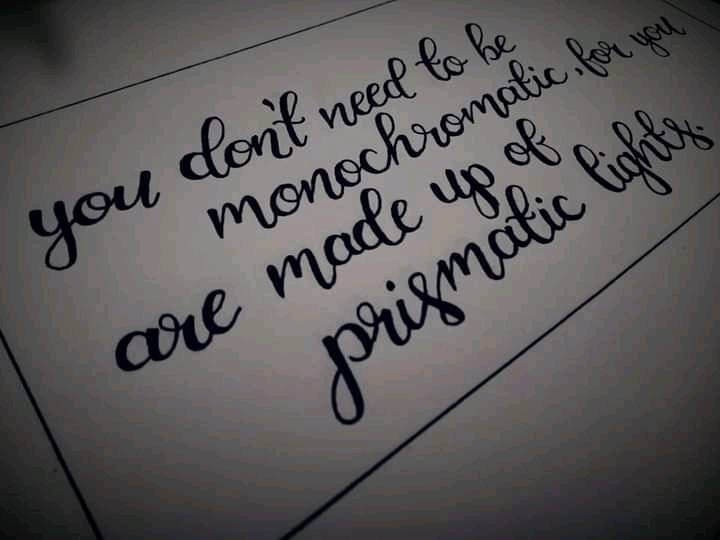 you don't need to be
monochromatic, for you
are made up of
prismatic lights.